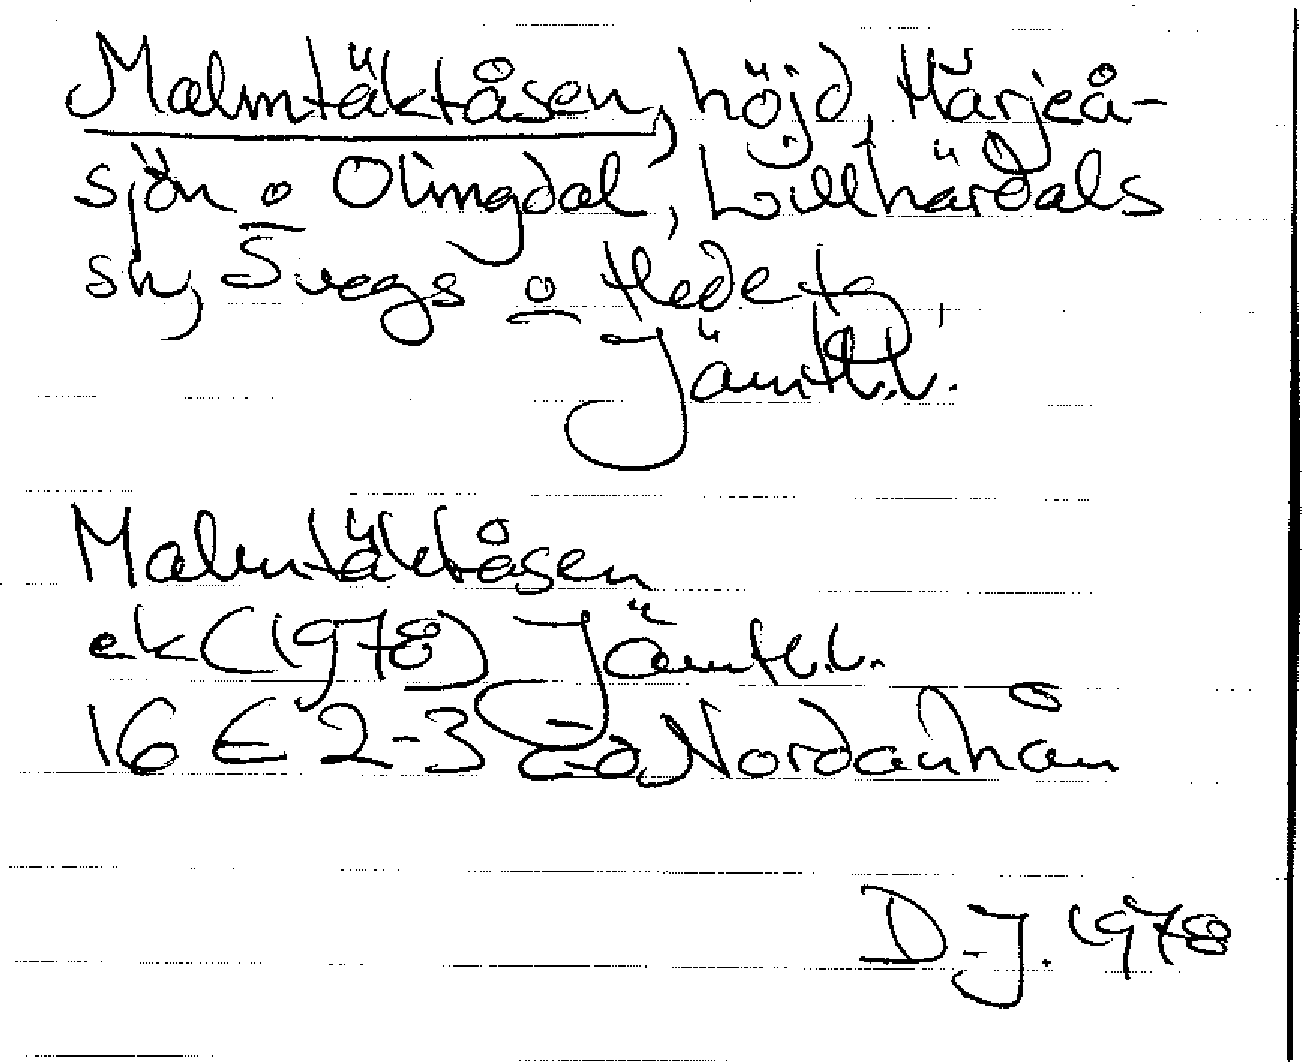 Malmtäktåsen, höjd, Härjeå-
sjön o Olingdal, Lillhärdals
sn, Svegs o Hede tg,
Jämtl.l.
Malmtäktåsen
ek (1978) Jämtl.l.
16 E 2-3 c-d Nordanhån
D.J. 1978